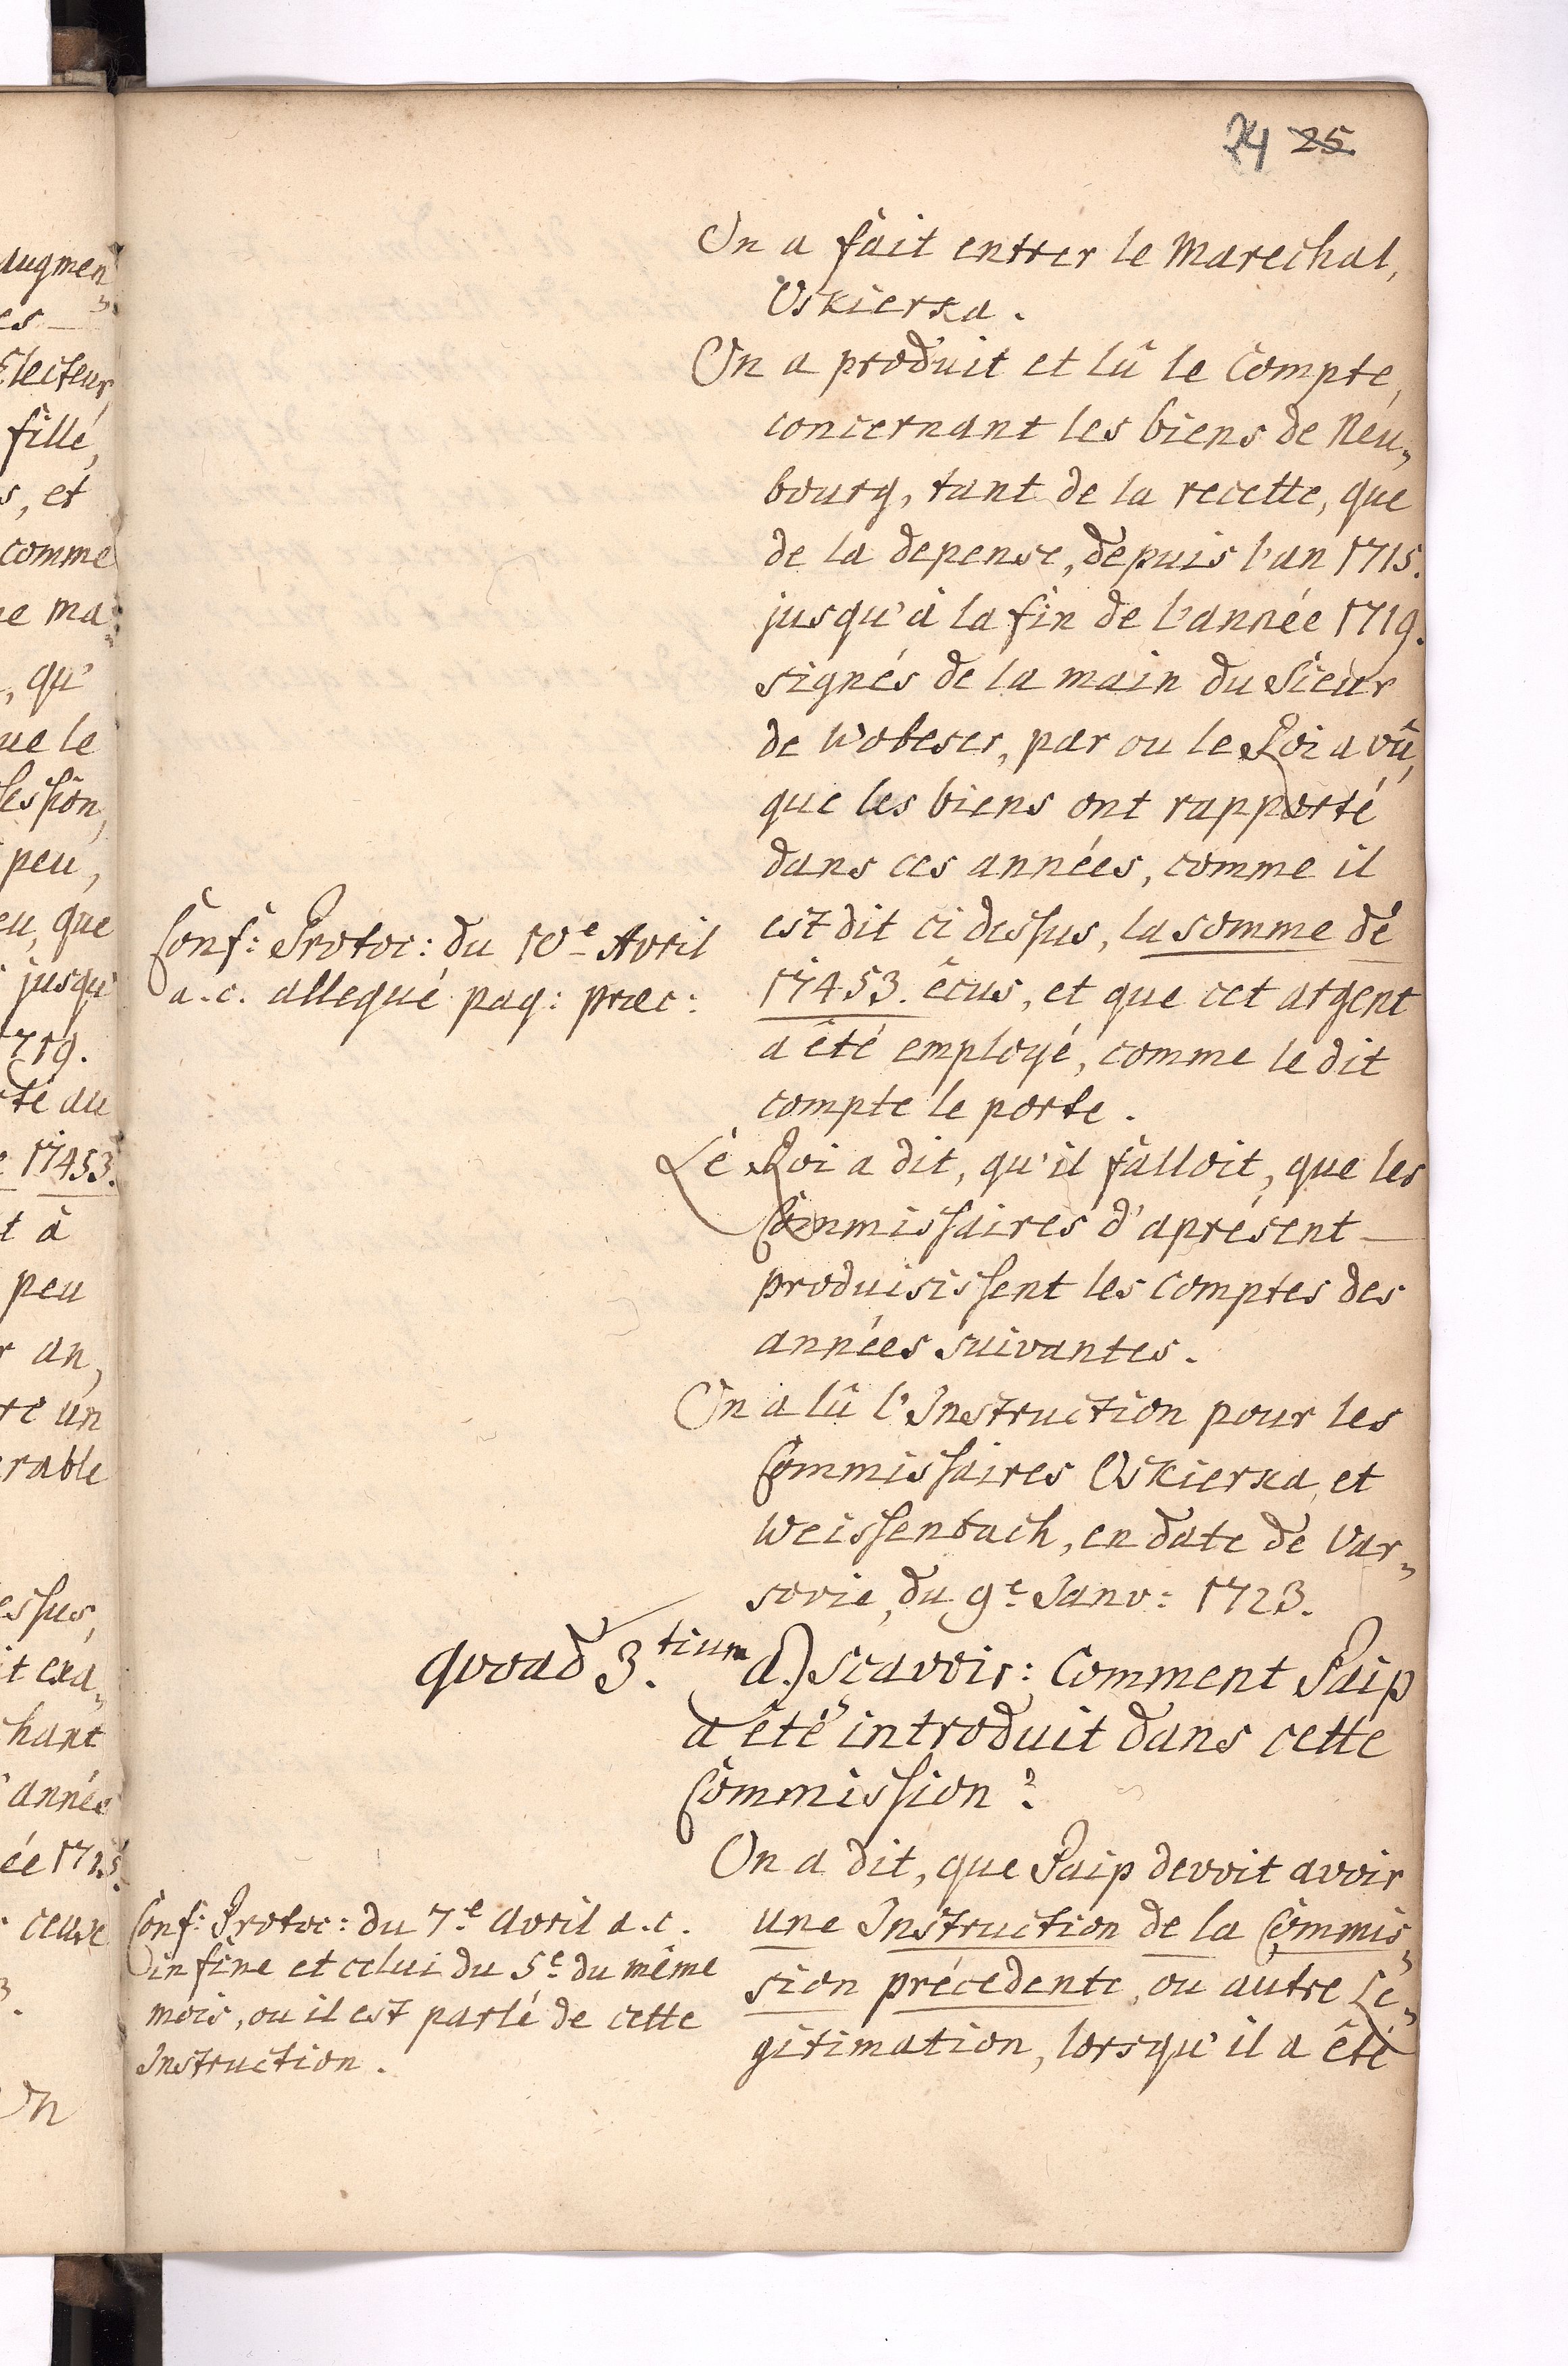 24 25
augmen„
es
Electeur,
fille,
s, et
comme
e ma„
, qu'
ue le
session,
peu,
eu, que
jusqu'
1719.
té du
e 17453.
t à
peu
r an,
re un
rable
essus,
it exa„
chant
année
ée 1715.
ceux
3.
On a fait entrer le Marechal,
Oskierka.
On a produit et lû le Compte,
concernant les biens de Neu„
bourg, tant de la recette, que
de la depense, depuis l'an 1715.
jusqu'à la fin de l'année 1719.
signés de la main du Sieur
de Wobeser, par ou le Roi a vû,
que les biens ont rapporté
dans ces années, comme il
est dit ci dessus, la somme de
17453. êcus, et que cet argent
a êté employé, comme le dit
compte le porte.
Conf: Protoc: du 10e Avril
a.c. allegué pag: præc:
Le Roi a dit, qu'il falloit, que les
Commissaires d'aprésent
produisissent les Comptes des
années suivantes.
On a lû l'Instruction pour les
Commissaires Oskierka, et
Weissenbach, en date de Var„
sovie, du 9e Janv: 1723.
quoad 3.tium a.) Scavoir: Comment Paip
a êté introduit dans cette
Commission?
On a dit, que Paip devoit avoir
une Instruction de la Commis„
sion précedente, ou autre Le„
gitimation, lorsqu'il a êté
Conf: Protoc: du 7e Avril a.c.
in fine et celui du 5e du même
mois, ou il est parlé de cette
Instruction.